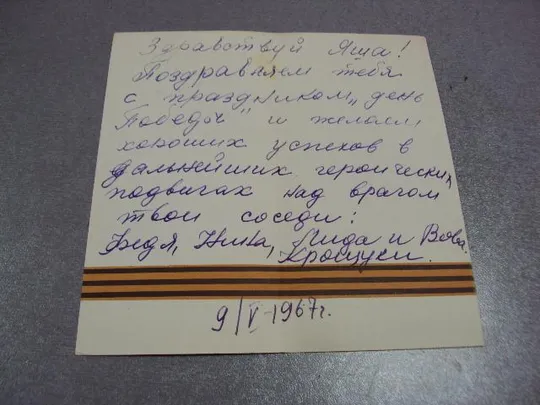 Здравствуй Яша!
Поздравляем тебя
с праздником „день
Победы" и желаем
хороших успехов в
дальнейших героических
подвигах над врагом
твои соседи:
Нина, Лида и Вова
9/V-1967г.